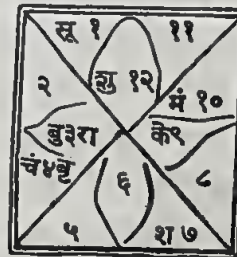 सू १ ११
शु १२
२ मं १०
बु३रा के९
चं४बृ
६ ८
५ श ७